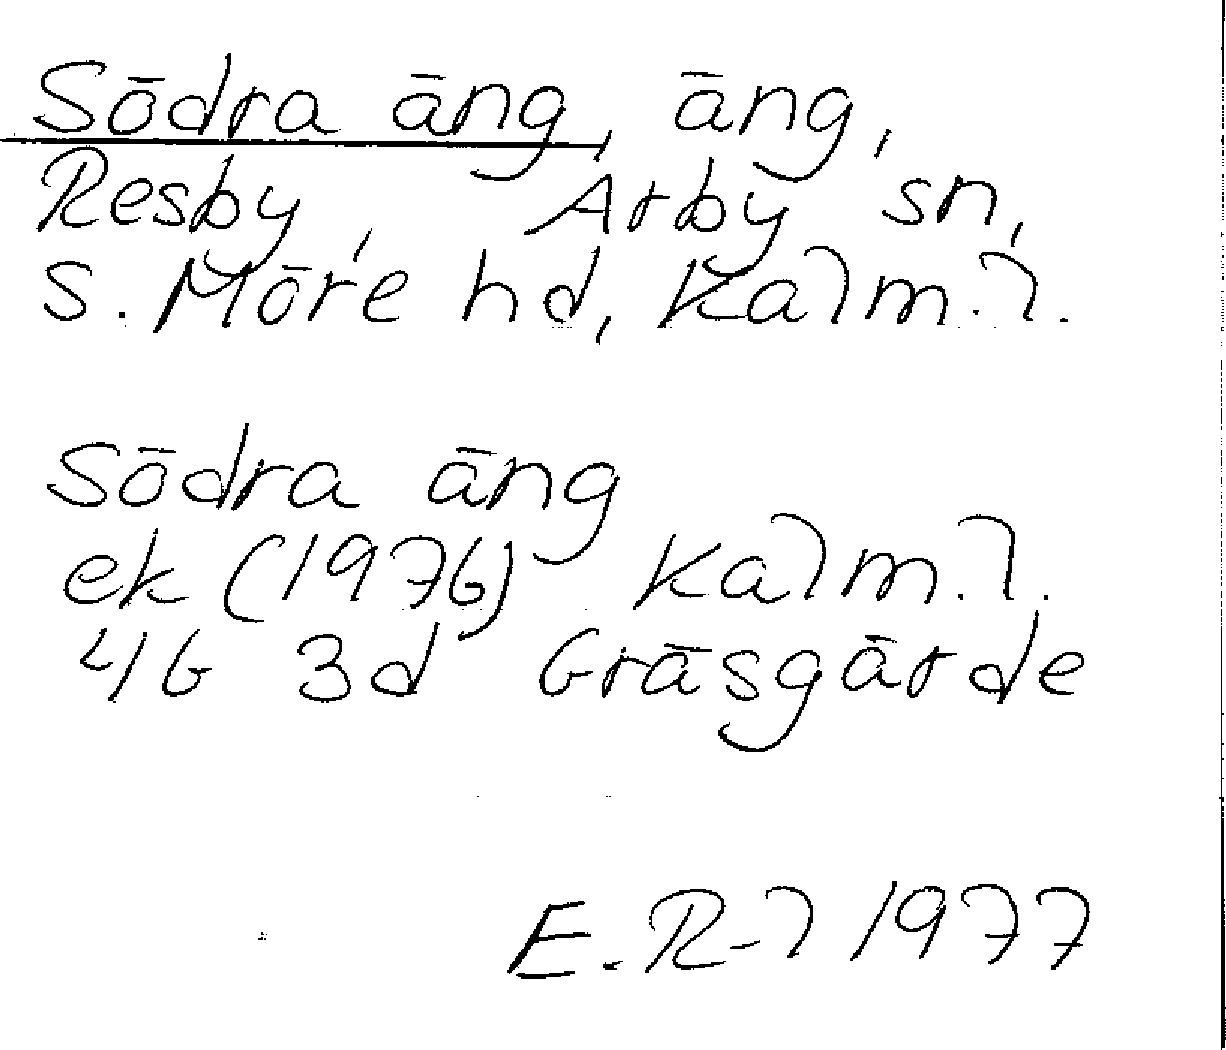 Södra äng, äng,
Resby, Arby sn,
S. Möre hd, Kalm. l.
Södra äng
ek (1976) Kalm. l.
4G 3d Gräsgärde
E. R-l 1977